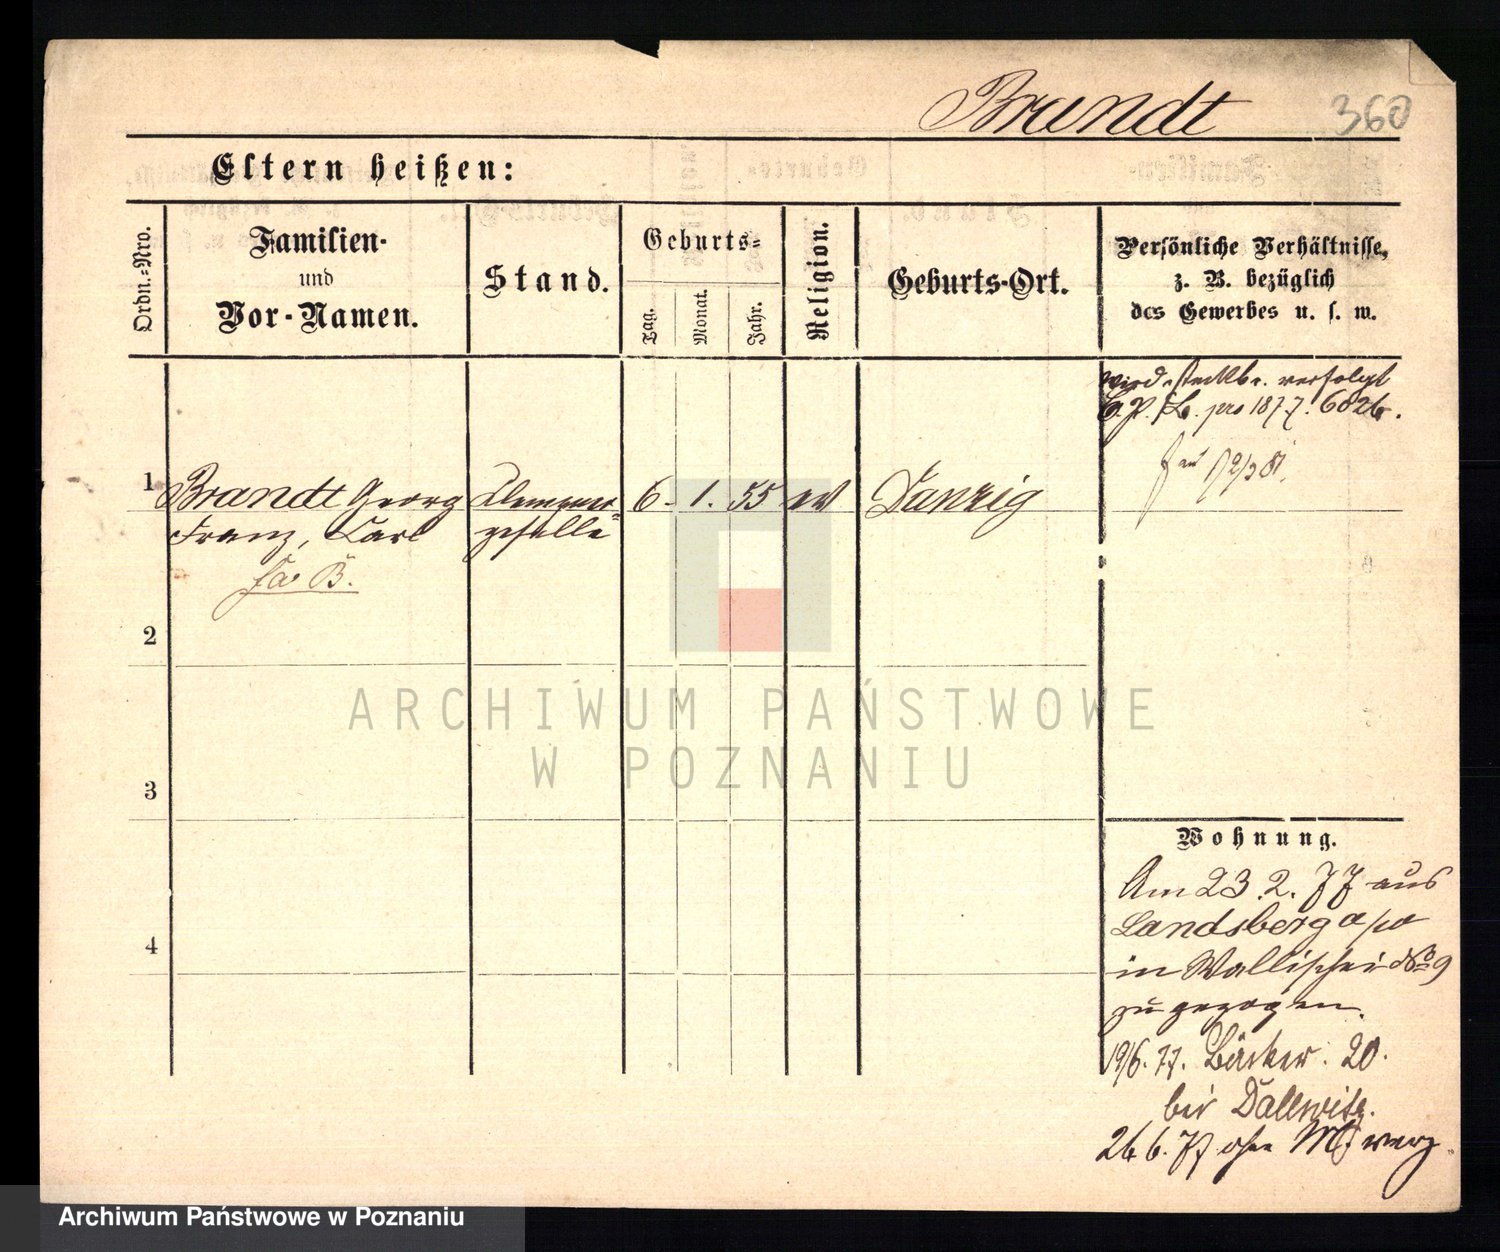 Brandt 360
Eltern heißen:
Ordn.-Nro.
Familien-
und
Vor-Namen.
Stand.
Geburts-
Tag.
Monat.
Jahr.
Religion.
Geburts-Ort.
Persönliche Verhältnisse,
z. B. bezüglich
des Gewerbes u. s. w.
wird steckbr. verfolgt
pro 1877. 6026.
1 Brandt Georg Klempner- 6. 1. 55 ev Danzig
Franz, Carl geselle
B.
2
3
4
Wohnung.
Am 23. 2. 77 aus
Landsberg a/w
in Wallischei No 9
zugezogen.
19/6. 77. Bäcker. 20.
bei Dallwitz.
26 6. 77 ohne verz.
ARCHIWUM PAŃSTWOWE
W POZNANIU
Archiwum Państwowe w Poznaniu